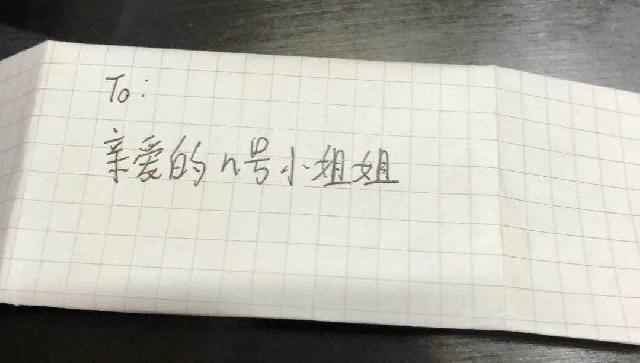 To:
亲爱的n号小姐姐